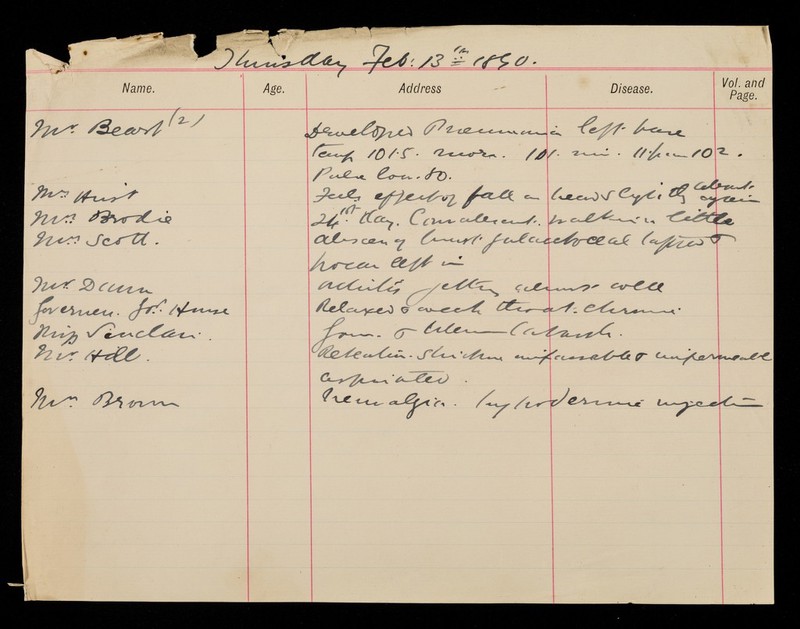 Thursday Feb: 13th 1890.
Name. Age. Address Disease. Vol. and Page.
Mr. Beart (2) Developed Pneumonia left base
temp 101.5. morn. 101. 11. p.m 102.
Pulse 80.
Mrs Hirst Feels effect of fall on head slightly
Mrs Brodie 24 day. Convalescent. walking little
Mrs Scott. abscess of breast
trocar left in
Mr. Dunn getting almost well
Govr. House Relaxed & weak throat. chronic
Miss Sinclair. Catarrh.
Mr. Hill. Retention. Stricture impassable & impermeable
aspirated.
Mrs Brown Neuralgia. hypodermic injection